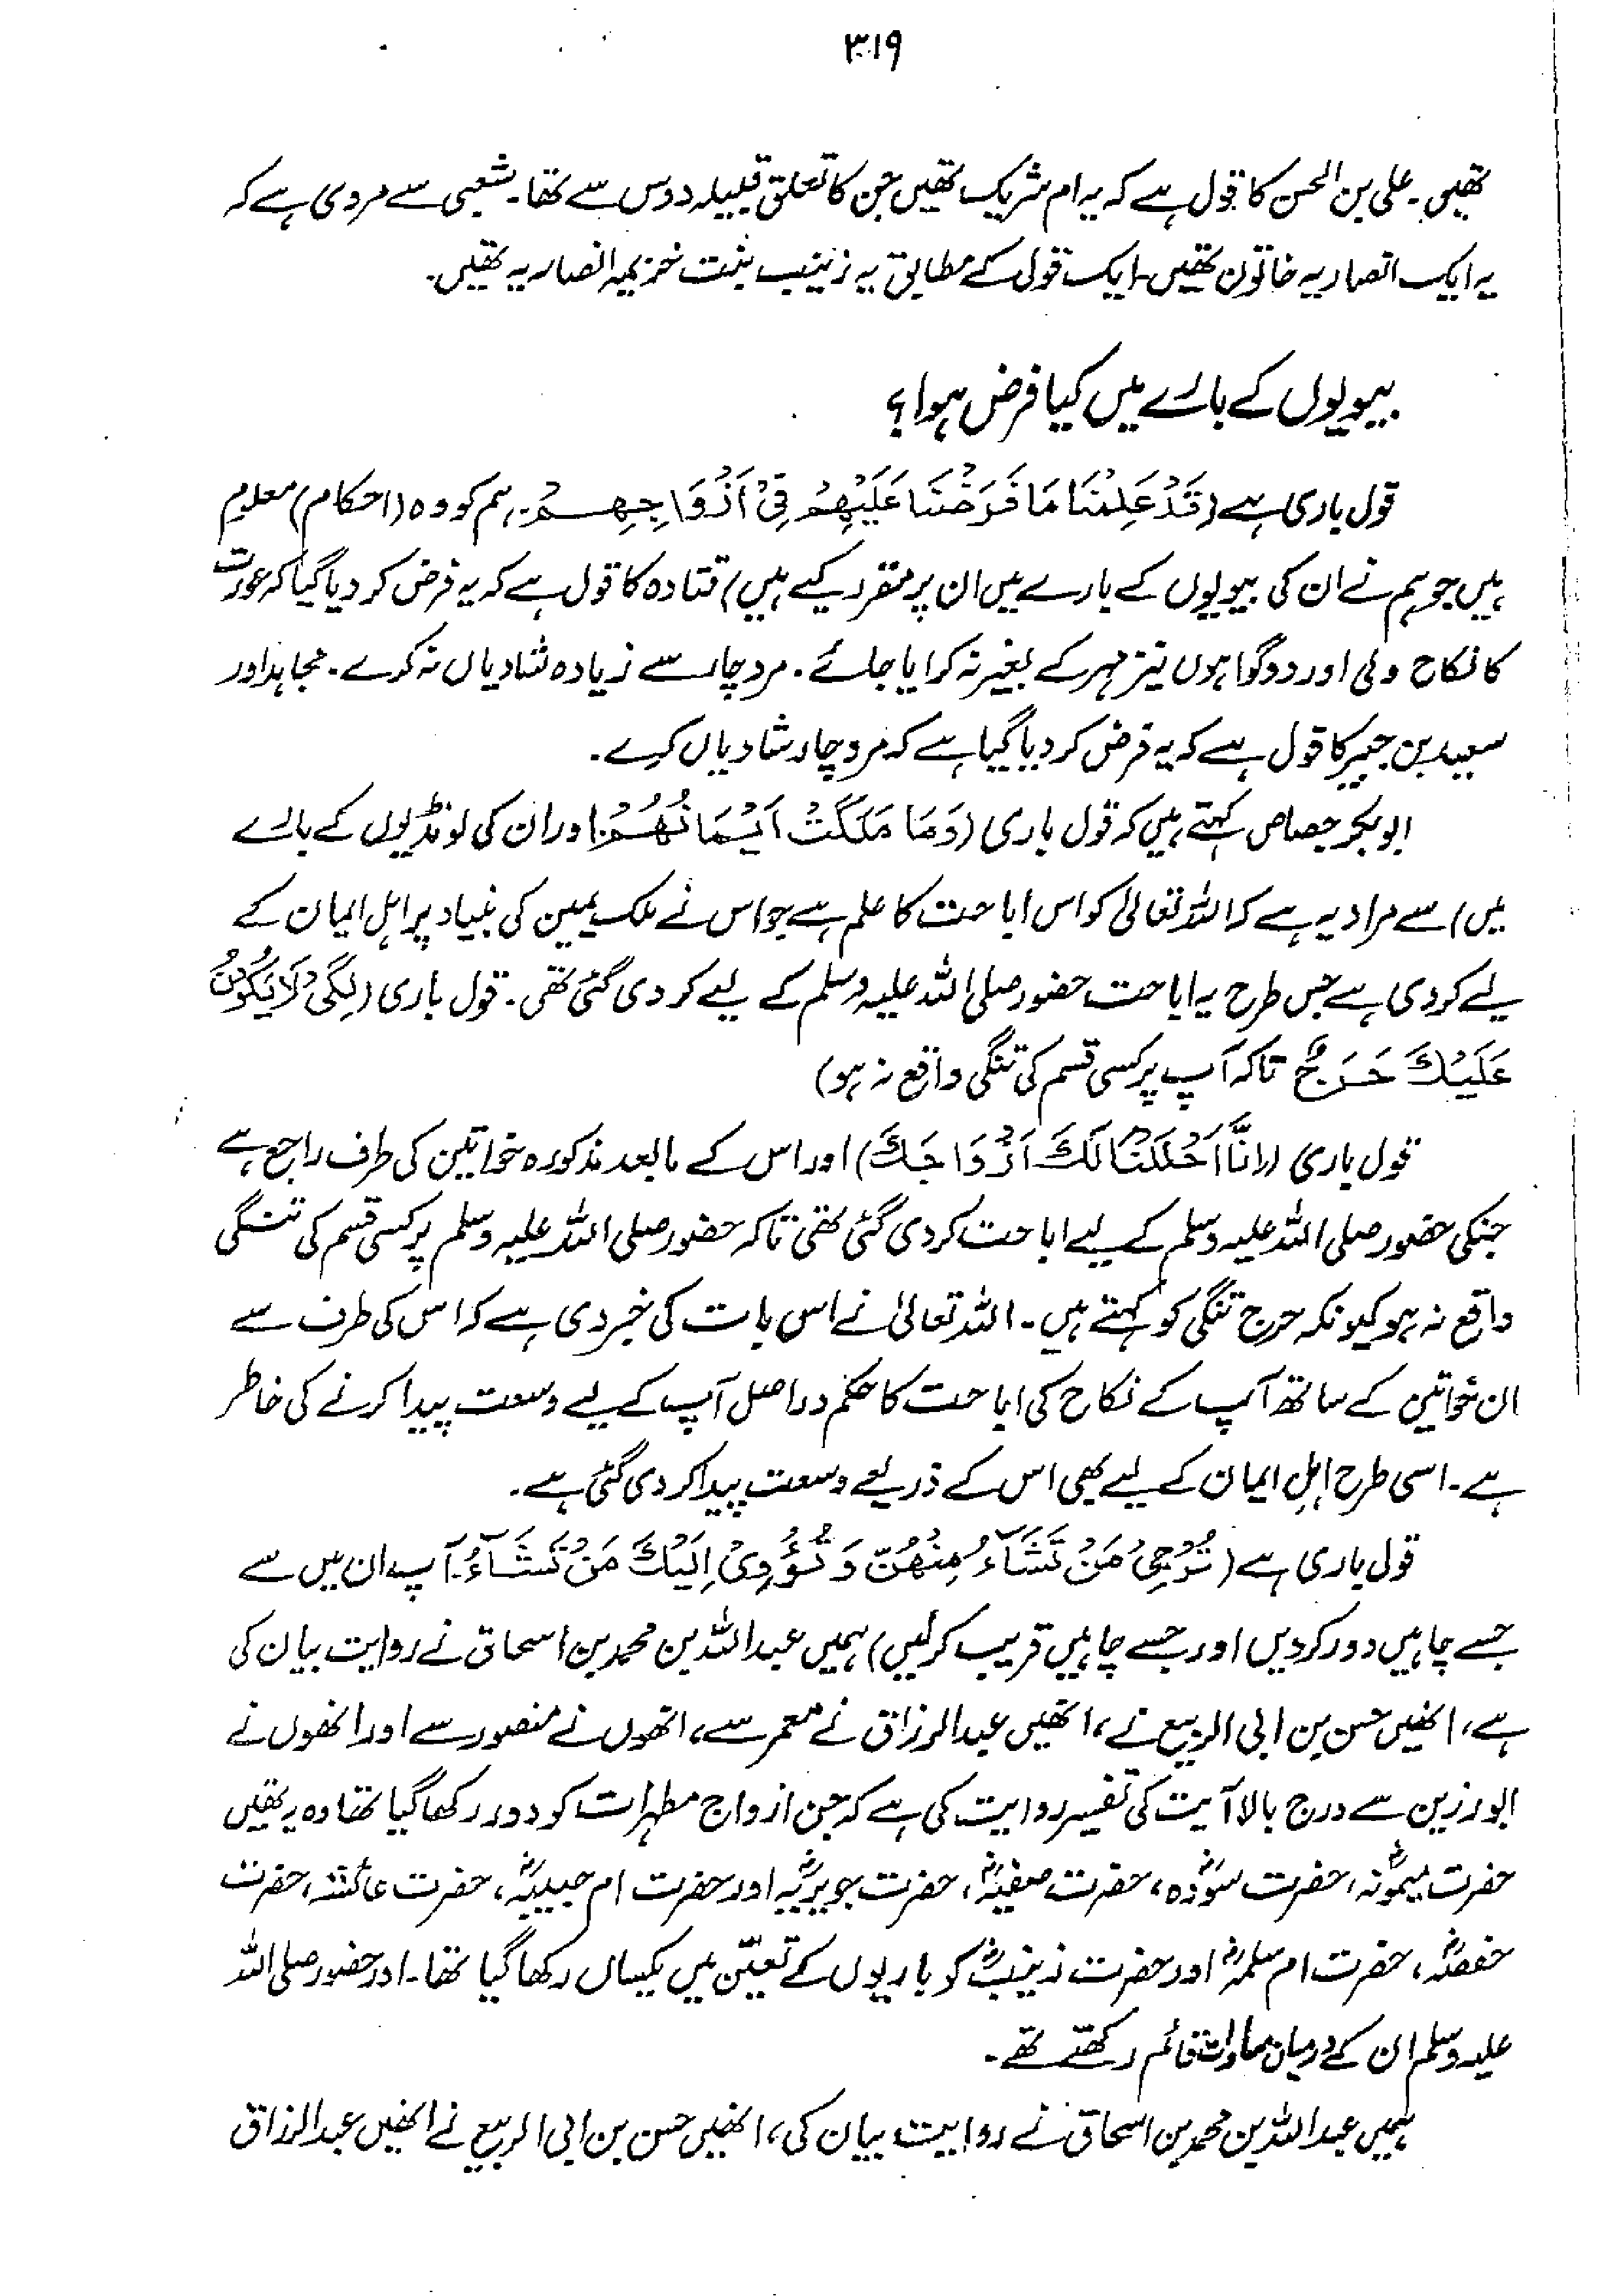 ۳۱۹
تھیں۔ علی بن الحسن کا قول ہے کہ یہ ام شریک تھیں جن کا تعلق قبیلہ دوس سے تھا۔ شعبی سے مروی ہے کہ
یہ ایک انصاریہ خاتون تھیں۔ ایک قول کے مطابق یہ زینب بنت خزیمہ انصاریہ تھیں۔
بیویوں کے بارے میں کیا فرض ہوا؟
قول باری ہے (قَدْ عَلِمْنَا مَا فَرَضْنَا عَلَیْھِمْ فِیْ اَزْوَاجِھِمْ۔ ہم کو وہ (احکام) معلوم
ہیں جو ہم نے ان کی بیویوں کے بارے میں ان پر مقرر کیے ہیں) قتادہ کا قول ہے کہ یہ فرض کر دیا گیا کہ عورت
کا نکاح ولی اور دو گواہوں نیز مہر کے بغیر نہ کرایا جائے۔ مرد چار سے زیادہ شادیاں نہ کرے۔ مجاہد اور
سعید بن جبیر کا قول ہے کہ یہ فرض کر دیا گیا ہے کہ مرد چار شادیاں کرے۔
ابوبکر جصاص کہتے ہیں کہ قول باری (وَمَا مَلَکَتْ اَیْمَانُھُمْ۔ اور ان کی لونڈیوں کے بارے
میں) سے مراد یہ ہے کہ اللہ تعالیٰ کو اس اباحت کا علم ہے جو اس نے ملک یمین کی بنیاد پر اہل ایمان کے
لیے کر دی ہے جس طرح یہ اباحت حضور صلی اللہ علیہ وسلم کے لیے کر دی گئی تھی۔ قول باری (لِکَیْ لَا یَکُوْنَ
عَلَیْكَ حَرَجٌ تاکہ آپ پر کسی قسم کی تنگی واقع نہ ہو)
قول باری (اِنَّا اَحْلَلْنَا لَكَ اَزْوَاجَكَ) اور اس کے مابعد مذکورہ خواتین کی طرف راجع ہے
جنکی حضور صلی اللہ علیہ وسلم کے لیے اباحت کر دی گئی تھی تاکہ حضور صلی اللہ علیہ وسلم پر کسی قسم کی تنگی
واقع نہ ہو کیونکہ حرج تنگی کو کہتے ہیں۔ اللہ تعالیٰ نے اس بات کی خبر دی ہے کہ اس کی طرف سے
ان خواتین کے ساتھ آپ کے نکاح کی اباحت کا حکم دراصل آپ کے لیے وسعت پیدا کرنے کی خاطر
ہے۔ اسی طرح اہلِ ایمان کے لیے بھی اس کے ذریعے وسعت پیدا کر دی گئی ہے۔
قول باری ہے (تُرْجِیْ مَنْ تَشَآءُ مِنْھُنَّ وَتُؤْوِیْ اِلَیْكَ مَنْ تَشَآءُ۔ آپ ان میں سے
جسے چاہیں دور کر دیں اور جسے چاہیں قریب کرلیں) ہمیں عبداللہ بن محمد بن اسحاق نے روایت بیان کی
ہے، انھیں حسن بن ابی الربیع نے، انھیں عبدالرزاق نے معمر سے، انھوں نے منصور سے اور انھوں نے
ابورزین سے درج بالا آیت کی تفسیر روایت کی ہے کہ جن ازواج مطہرات کو دور رکھا گیا تھا وہ یہ تھیں
حضرت میمونہؓ، حضرت سودہؓ، حضرت صفیہؓ، حضرت جویریہؓ اور حضرت ام حبیبہؓ، حضرت عائشہ، حضرت
حفصہؓ، حضرت ام سلمہؓ اور حضرت زینبؓ کو باریوں کے تعیّن میں یکساں رکھا گیا تھا۔ اور حضور صلی اللہ
علیہ وسلم ان کے درمیان مساوات قائم رکھتے تھے۔
ہمیں عبداللہ بن محمد بن اسحاق نے روایت بیان کی، انھیں حسن بن ابی الربیع نے انھیں عبدالرزاق